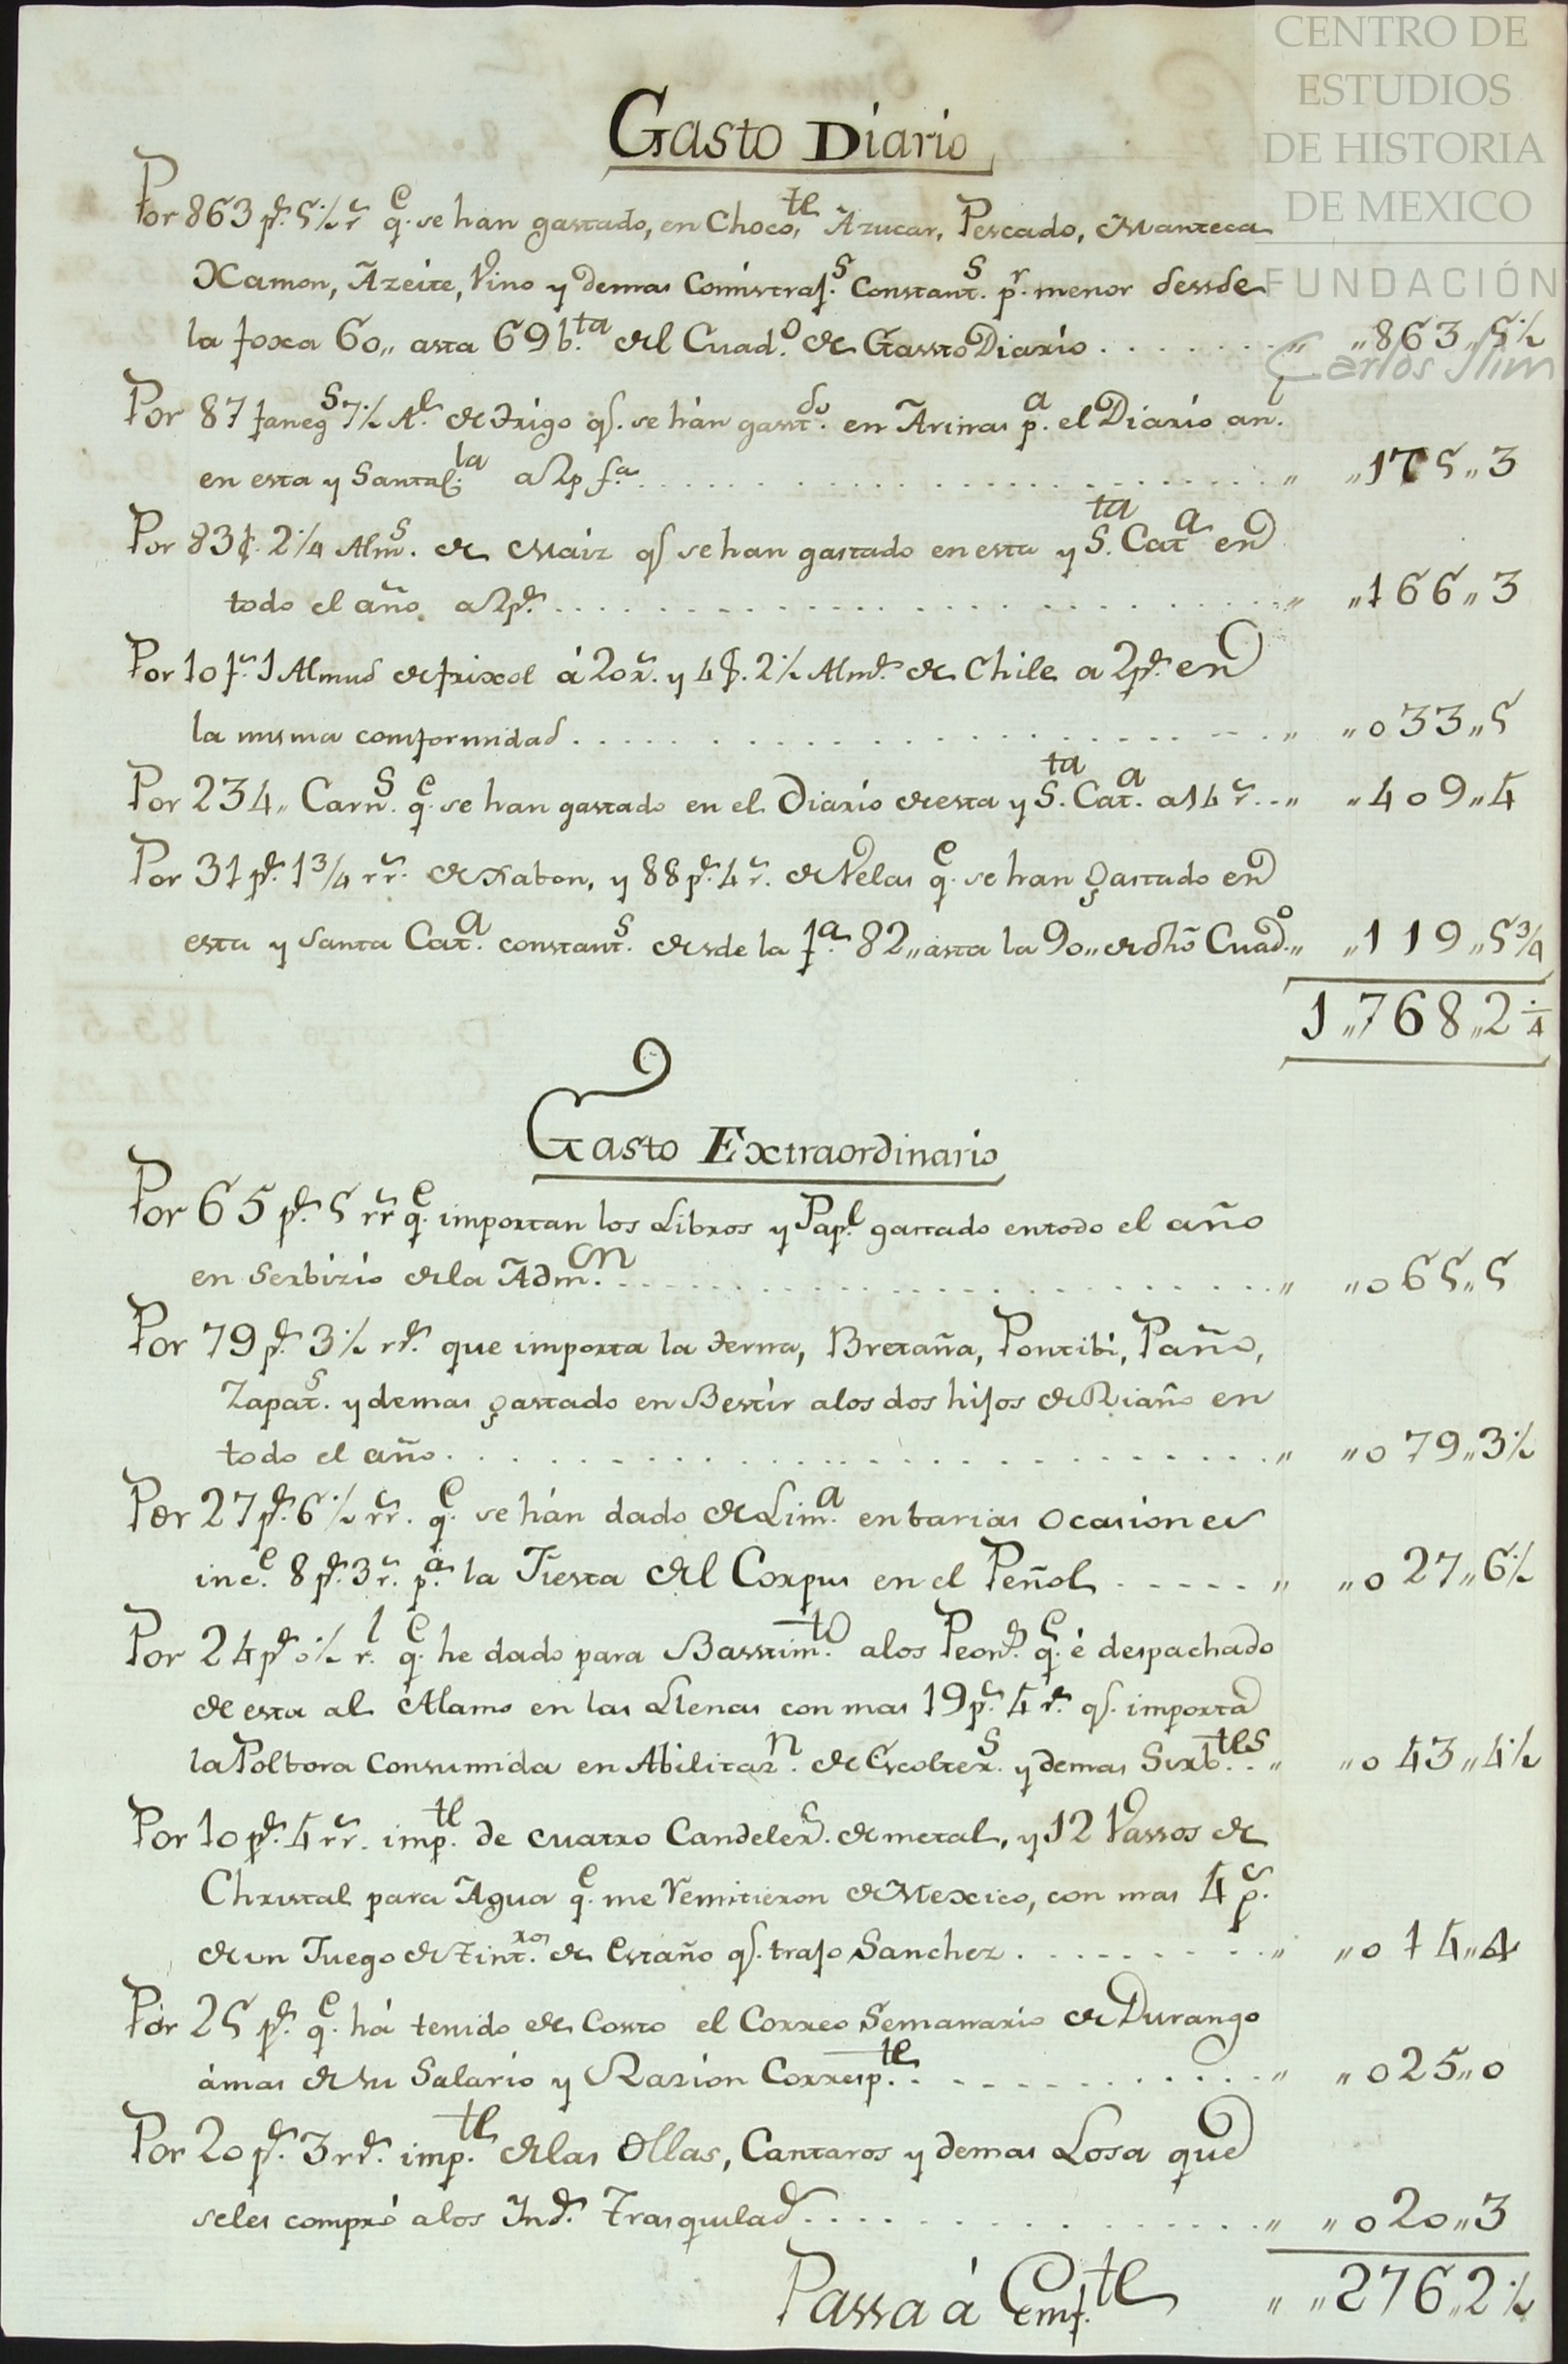 CENTRO DE
ESTUDIOS
DE HISTORIA
DE MEXICO
FUNDACIÓN
Carlos Slim
Gasto Diario
Por 863 ps. 5½ r q.e se han gastado, en Choco.te Azucar, Pescado, Manteca
Xamon, Azeite, Vino y demas Comistraj.s Constant.s p.r menor desde
la foxa 60,, asta 69 b.ta del Cuad.o de Gassto Diario . . . . . . . ,, ,,863,,5½
Por 87 faneg.s 7½ Al. de trigo q. se hán gast.do en Arinas p.a el Diario an.l
en esta y Santa C.la a 2 p f.a . . . . . . . . . . ,, ,,175,,3
Por 83 f. 2¼ Alm.s de Maiz q. se han gastado en esta y S.ta Cat.a en
todo el año a 2 ps. . . . . . . . . . . ,, ,,166,,3
Por 10 f.s 1 Almud de frixol á 20 r. y 4 f. 2½ Alm.s de Chile a 2 ps. en
la misma comformidad . . . . . . . . . . ,, ,,033,,5
Por 234,, Carn.s q.e se han gastado en el Diario de esta y S.ta Cat.a a 14 r. . . ,, ,,409,,4
Por 31 ps. 1¾ rr. de xabon, y 88 ps. 4 r. de Velas q.e se han gastado en
esta y Santa Cat.a constant.s desde la f.a 82,, asta la 90,, de dho Cuad.o ,, ,,119,,5¾
1,,768,,2¼
Gasto Extraordinario
Por 65 ps. 5 rr q.e importan los Libros y Pap.l gastado entodo el año
en Serbizio de la Adm.on . . . . . . . . . . ,, ,,065,,5
Por 79 ps. 3½ rs. que importa la terna, Bretaña, Pontibi, Paño,
Zapat.s y demas gastado en Bestir alos dos hijos de Riaño en
todo el año . . . . . . . . . . ,, ,,079,,3½
Por 27 ps. 6½ rr. q.e se hán dado de Lim.a en barias ocasiones
inc.e 8 ps. 3 r. p.a la Fiesta del Corpus en el Peñol . . . . . ,, ,,027,,6½
Por 24 ps 0½ r.l q.e he dado para Basstim.to alos Peon.s q.e é despachado
de esta al Alamo en las Llenas con mas 19 p.s 4 r.s q. importa
la Polbora Consumida en Abilitaz.n de Escolter.s y demas Sirb.tes . ,, ,,043,,4½
Por 10 ps. 4 rr. imp.te de cuatro Candeler.s de metal, y 12 Vassos de
Christal para Agua q.e me remitieron de Mexico, con mas 4 p.s
de un Juego de Tint.ros de Estaño q. trajo Sanchez . . . . . . . . ,, ,,014,,4
Por 25 ps. q.e há tenido de Costo el Correo Semanario de Durango
ámas de su Salario y Razion Corresp.te . . . . . . . . ,, ,,025,,0
Por 20 ps. 3 rs. imp.te de las Ollas, Cantaros y demas Losa que
seles compró alos Ind.s Trasquilad.s . . . . . . . . . . ,, ,,020,,3
Passa á Emf.te ,, ,,276,,2½